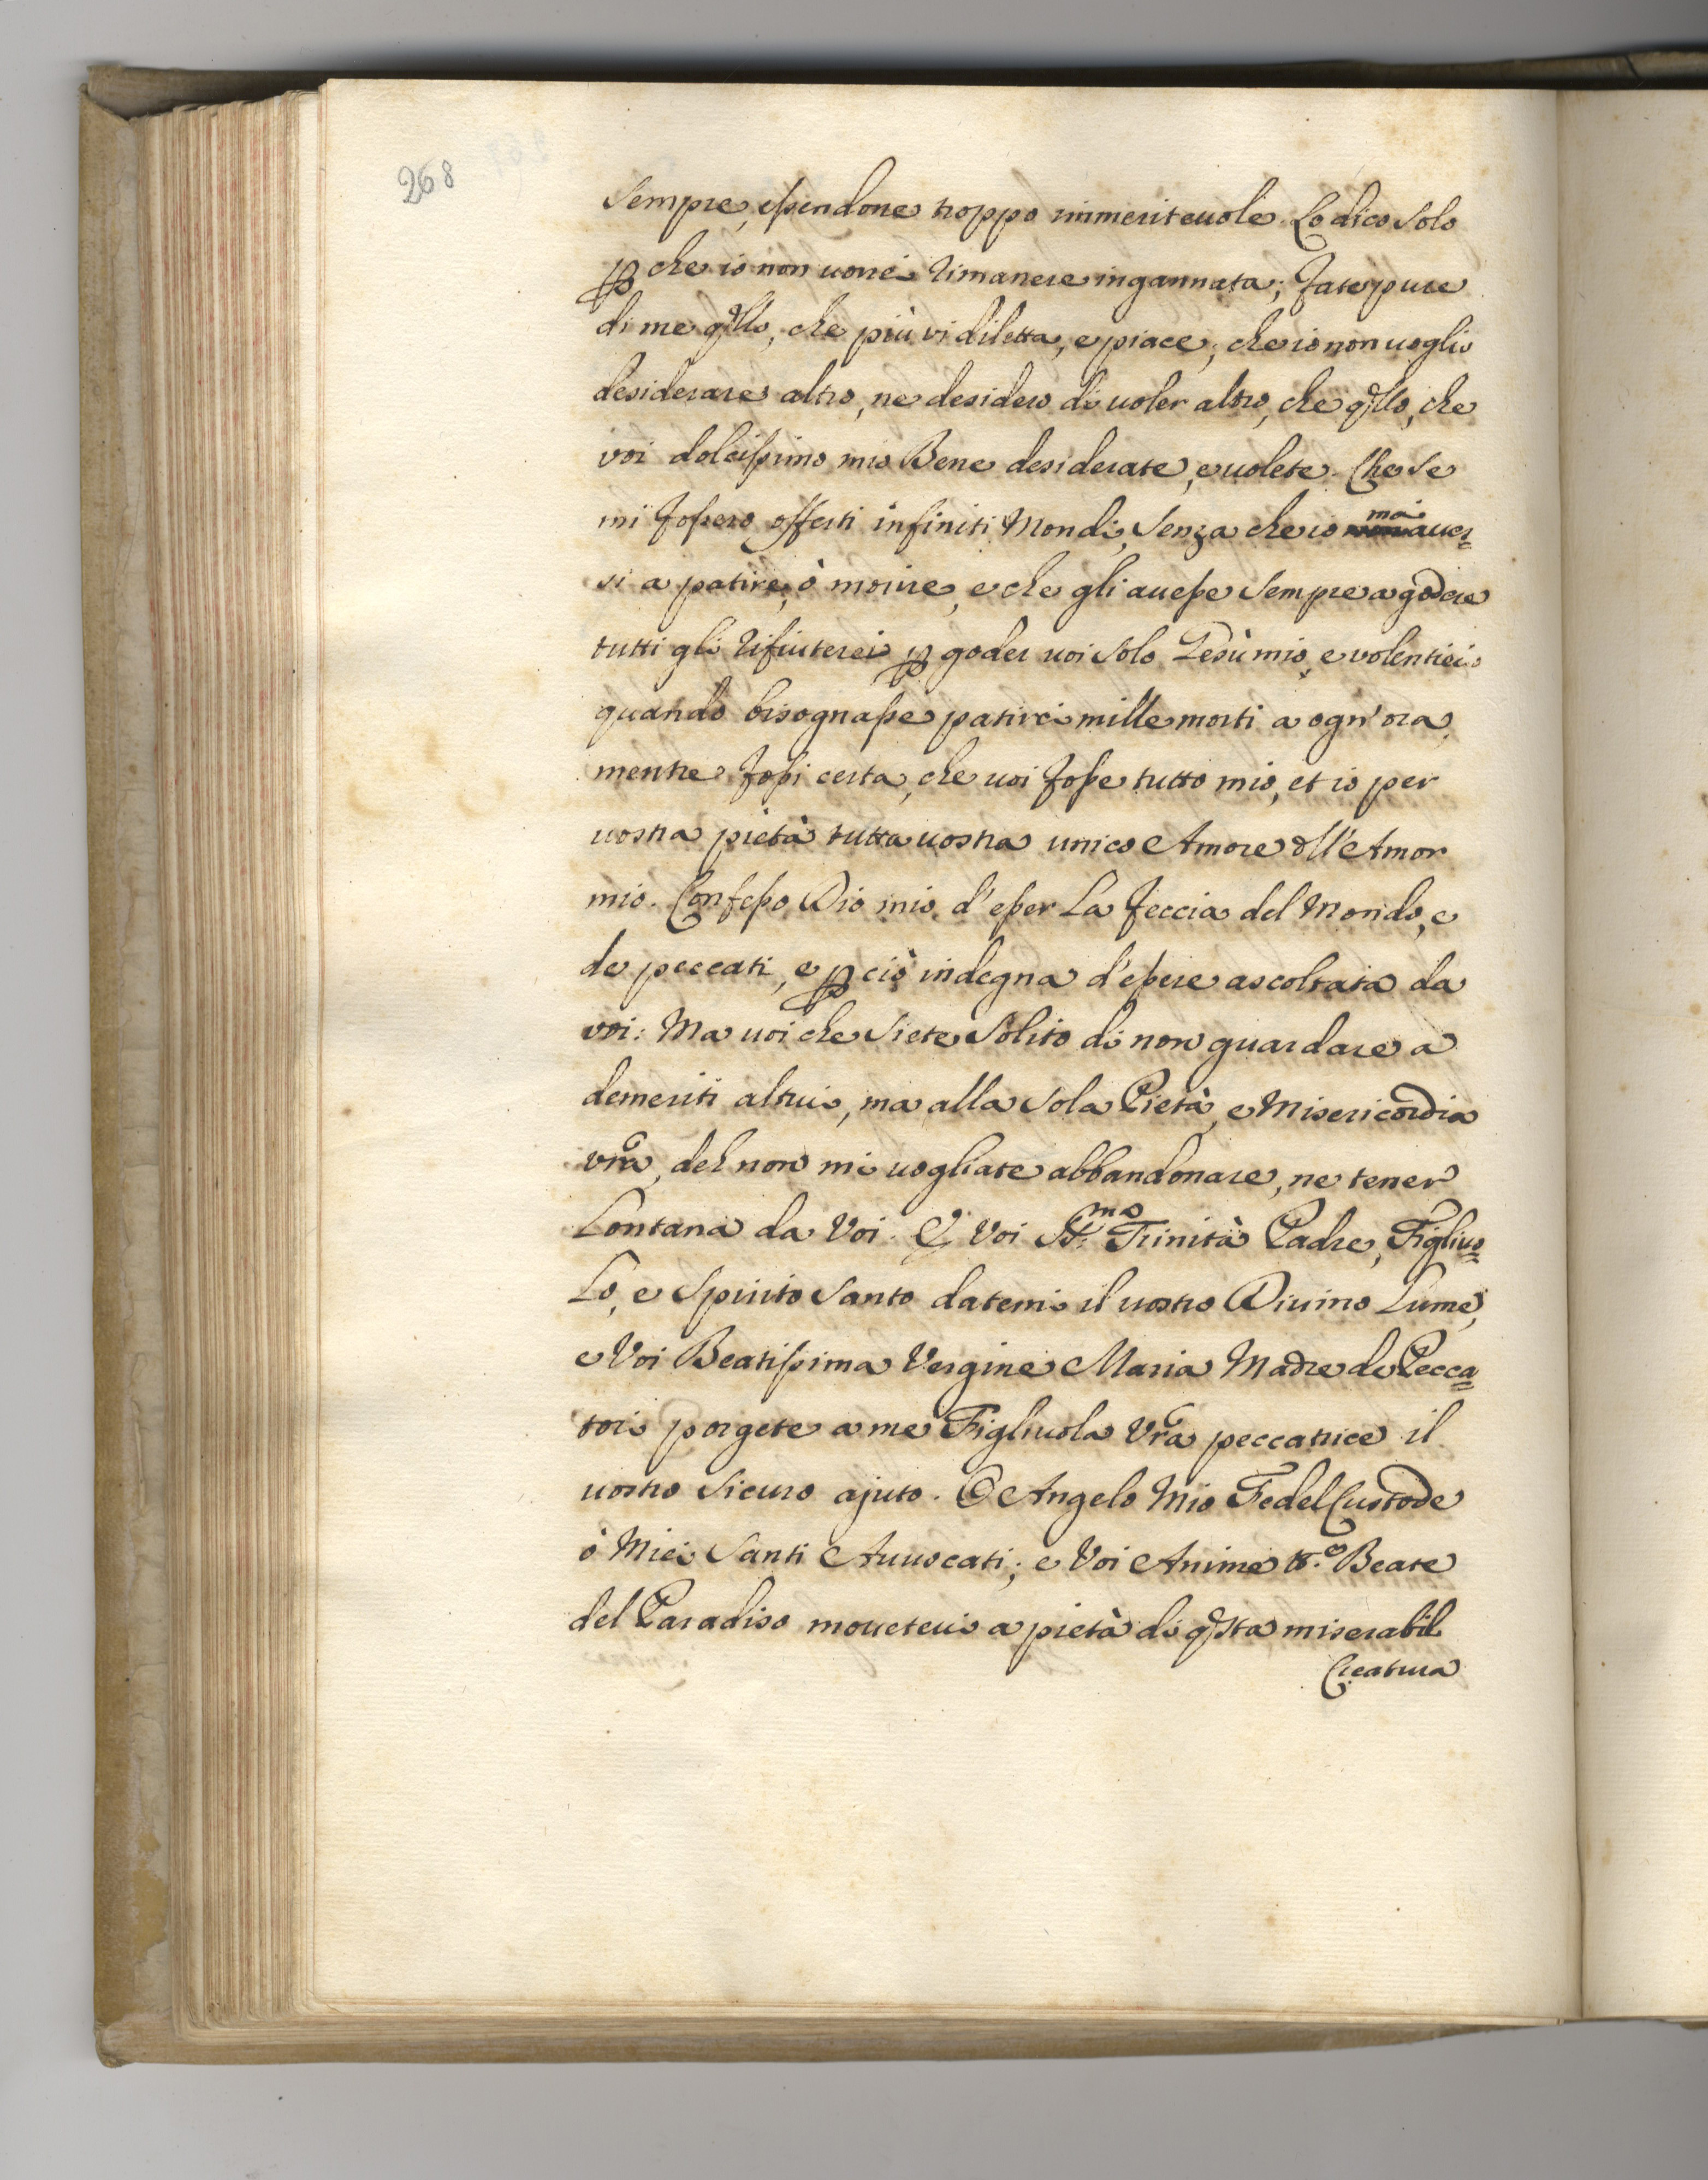 268
sempre, essendone troppo immeriteuole. Lo dico solo
p che io non uorrei rimanere ingannata; fate pure
di me qllo, che più vi diletta, e piace; che io non uoglio
desiderare altro, ne desidero di uoler altro, che qllo, che
voi dolcissimo mio Bene desiderate, e uolete. Che se
mi fossero offerti infiniti Mondi, senza che io mai aues=
si a patire, ò morire, e che gli auesse sempre a godere
tutti gli rifiuterei p goder uoi solo Gesù mio, e volentieri
quando bisognasse patirci mille morti a ogn'ora,
mentre fossi certa, che uoi fosse tutto mio, et io per
uostra pietà tutta uostra unico Amore dll'Amor
mio. Confesso Dio mio, d'esser La feccia del Mondo, e
de peccati, e p ciò indegna d'essere ascoltata da
voi: Ma uoi che siete solito di non guardare a
demeriti altrui, ma alla sola Pietà, e Misericordia
vra, deh non mi uogliate abbandonare, ne tener
Lontana da Voi. E Voi SS.ma Trinità Padre, Figliuo=
Lo, e Spirito Santo datemi il uostro Diuino Lume,
e Voi Beatissima Vergine Maria Madre de Pecca=
tori porgete a me Figliuola Vra peccatrice il
uostro sicuro ajuto. O Angelo Mio Fedel Custode
ò Miei Santi Auuocati; e Voi Anime tt.e Beate
del Paradiso moueteui a pietà di qsta miserabil
Creatura